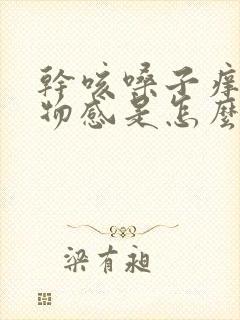 幹咳嗓子癢
物感是怎麼
梁有昶